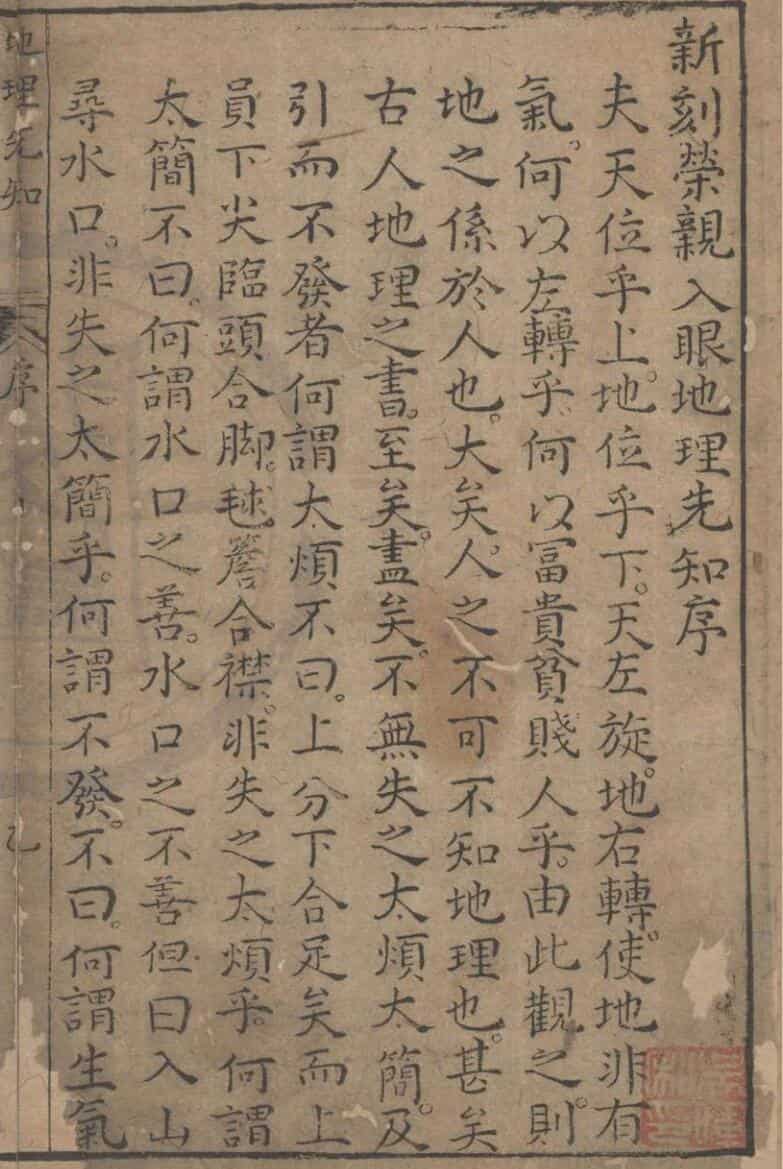 新刻榮親入眼地理先知序
夫天位乎上。地位乎下。天左旋。地右轉。使地非有
氣。何以左轉乎。何以冨貴貧賤人乎。由此觀之。則
地之係於人也。大矣。人之不可不知地理也。甚矣
古人地理之書。至矣。盡矣。不無失之太煩太簡。及
引而不發者何謂太煩不曰。上分下合足矣而上
員下尖臨頭合脚。毬簷合襟。非失之太煩乎。何謂
太簡不曰。何謂水口之善。水口之不善但曰入山
尋水口。非失之太簡乎。何謂不發。不曰。何謂生氣
地理先知
序
乙